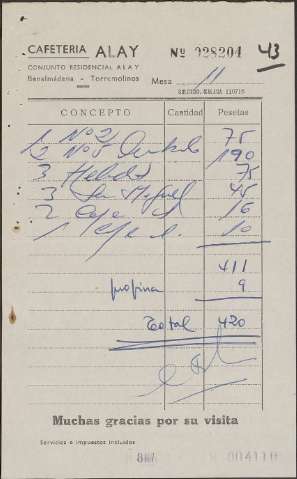 CAFETERIA ALAY Nº 028204 43
CONJUNTO RESIDENCIAL ALAY
Benalmádena - Torremolinos Mesa 11
CONCEPTO Cantidad Pesetas
1 Nº 2 75
2 Nº 5 190
3 Helados 75
3 San Miguel 45
2 Café 16
1 Café 10
411
propina 9
Total 420
Muchas gracias por su visita
Servicios e impuestos incluidos